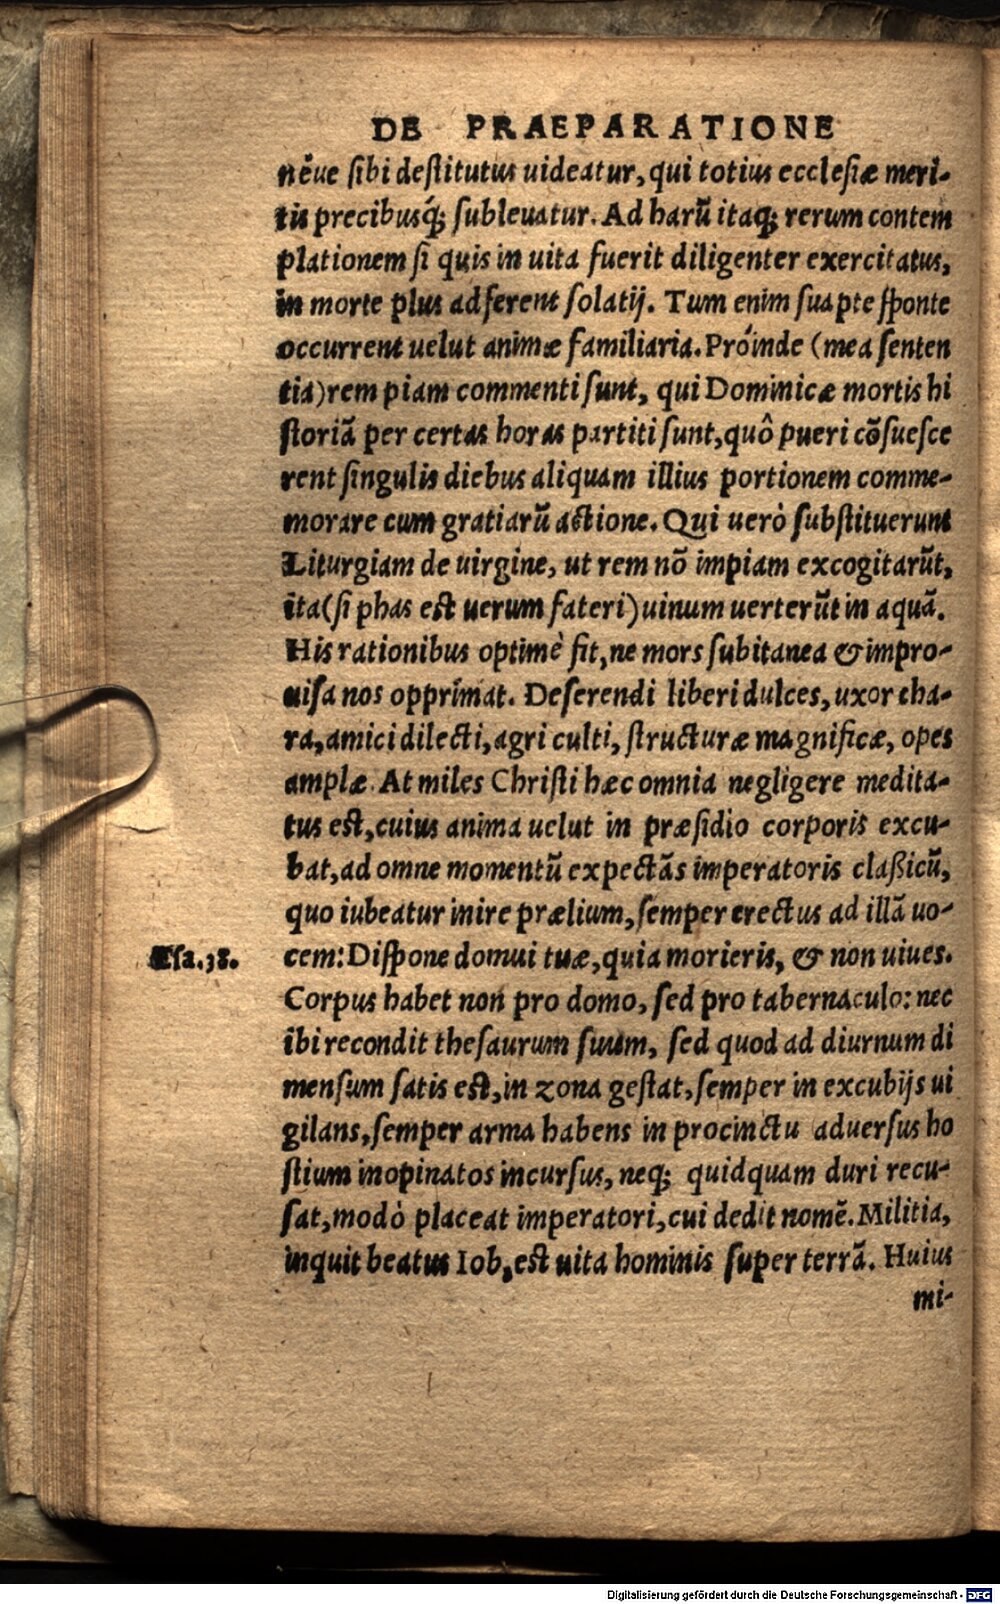 DE PRAEPARATIONE
nêue ſibi deſtitutus uideatur, qui totius eccleſiæ meri-
tis precibusq́; ſubleuatur. Ad harũ itaq; rerum contem
plationem ſi quis in uita fuerit diligenter exercitatus,
in morte plus adferent ſolatij. Tum enim ſuapte ſponte
occurrent uelut animæ familiaria. Próinde (mea ſenten
tia) rem piam commenti ſunt, qui Dominicæ mortis hi
ſtoriã per certas horas partiti ſunt, quô pueri cõſueſce
rent ſingulis diebus aliquam illius portionem comme-
morare cum gratiarũ actione. Qui uerò ſubſtituerunt
Liturgiam de uirgine, ut rem nõ impiam excogitarũt,
ita (ſi phas est uerum fateri) uinum uerterũt in aquã.
His rationibus optimè fit, ne mors ſubitanea & impro-
uiſa nos opprímat. Deſerendi liberi dulces, uxor cha-
ra, amici dilecti, agri culti, ſtructuræ magnificæ, opes
amplæ. At miles Chriſti hæc omnia negligere medita-
tus eſt, cuius anima uelut in præſidio corporis excu-
bat, ad omne momentũ expectãs imperatoris claßicũ,
quo iubeatur inire prælium, ſemper erectus ad illã uo-
Eſa. 38. cem: Diſpone domui tuæ, quia morieris, & non uiues.
Corpus habet non pro domo, ſed pro tabernaculo: nec
ibi recondit theſaurum ſuum, ſed quod ad diurnum di
menſum ſatis eſt, in zona geſtat, ſemper in excubijs ui
gilans, ſemper arma habens in procinctu aduerſus ho
ſtium inopinatos incurſus, neq; quidquam duri recu-
ſat, modò placeat imperatori, cui dedit nomẽ. Militia,
inquit beatus Iob, eſt uita hominis ſuper terrã. Huius
mi-
Digitalisierung gefördert durch die Deutsche Forschungsgemeinschaft - DFG